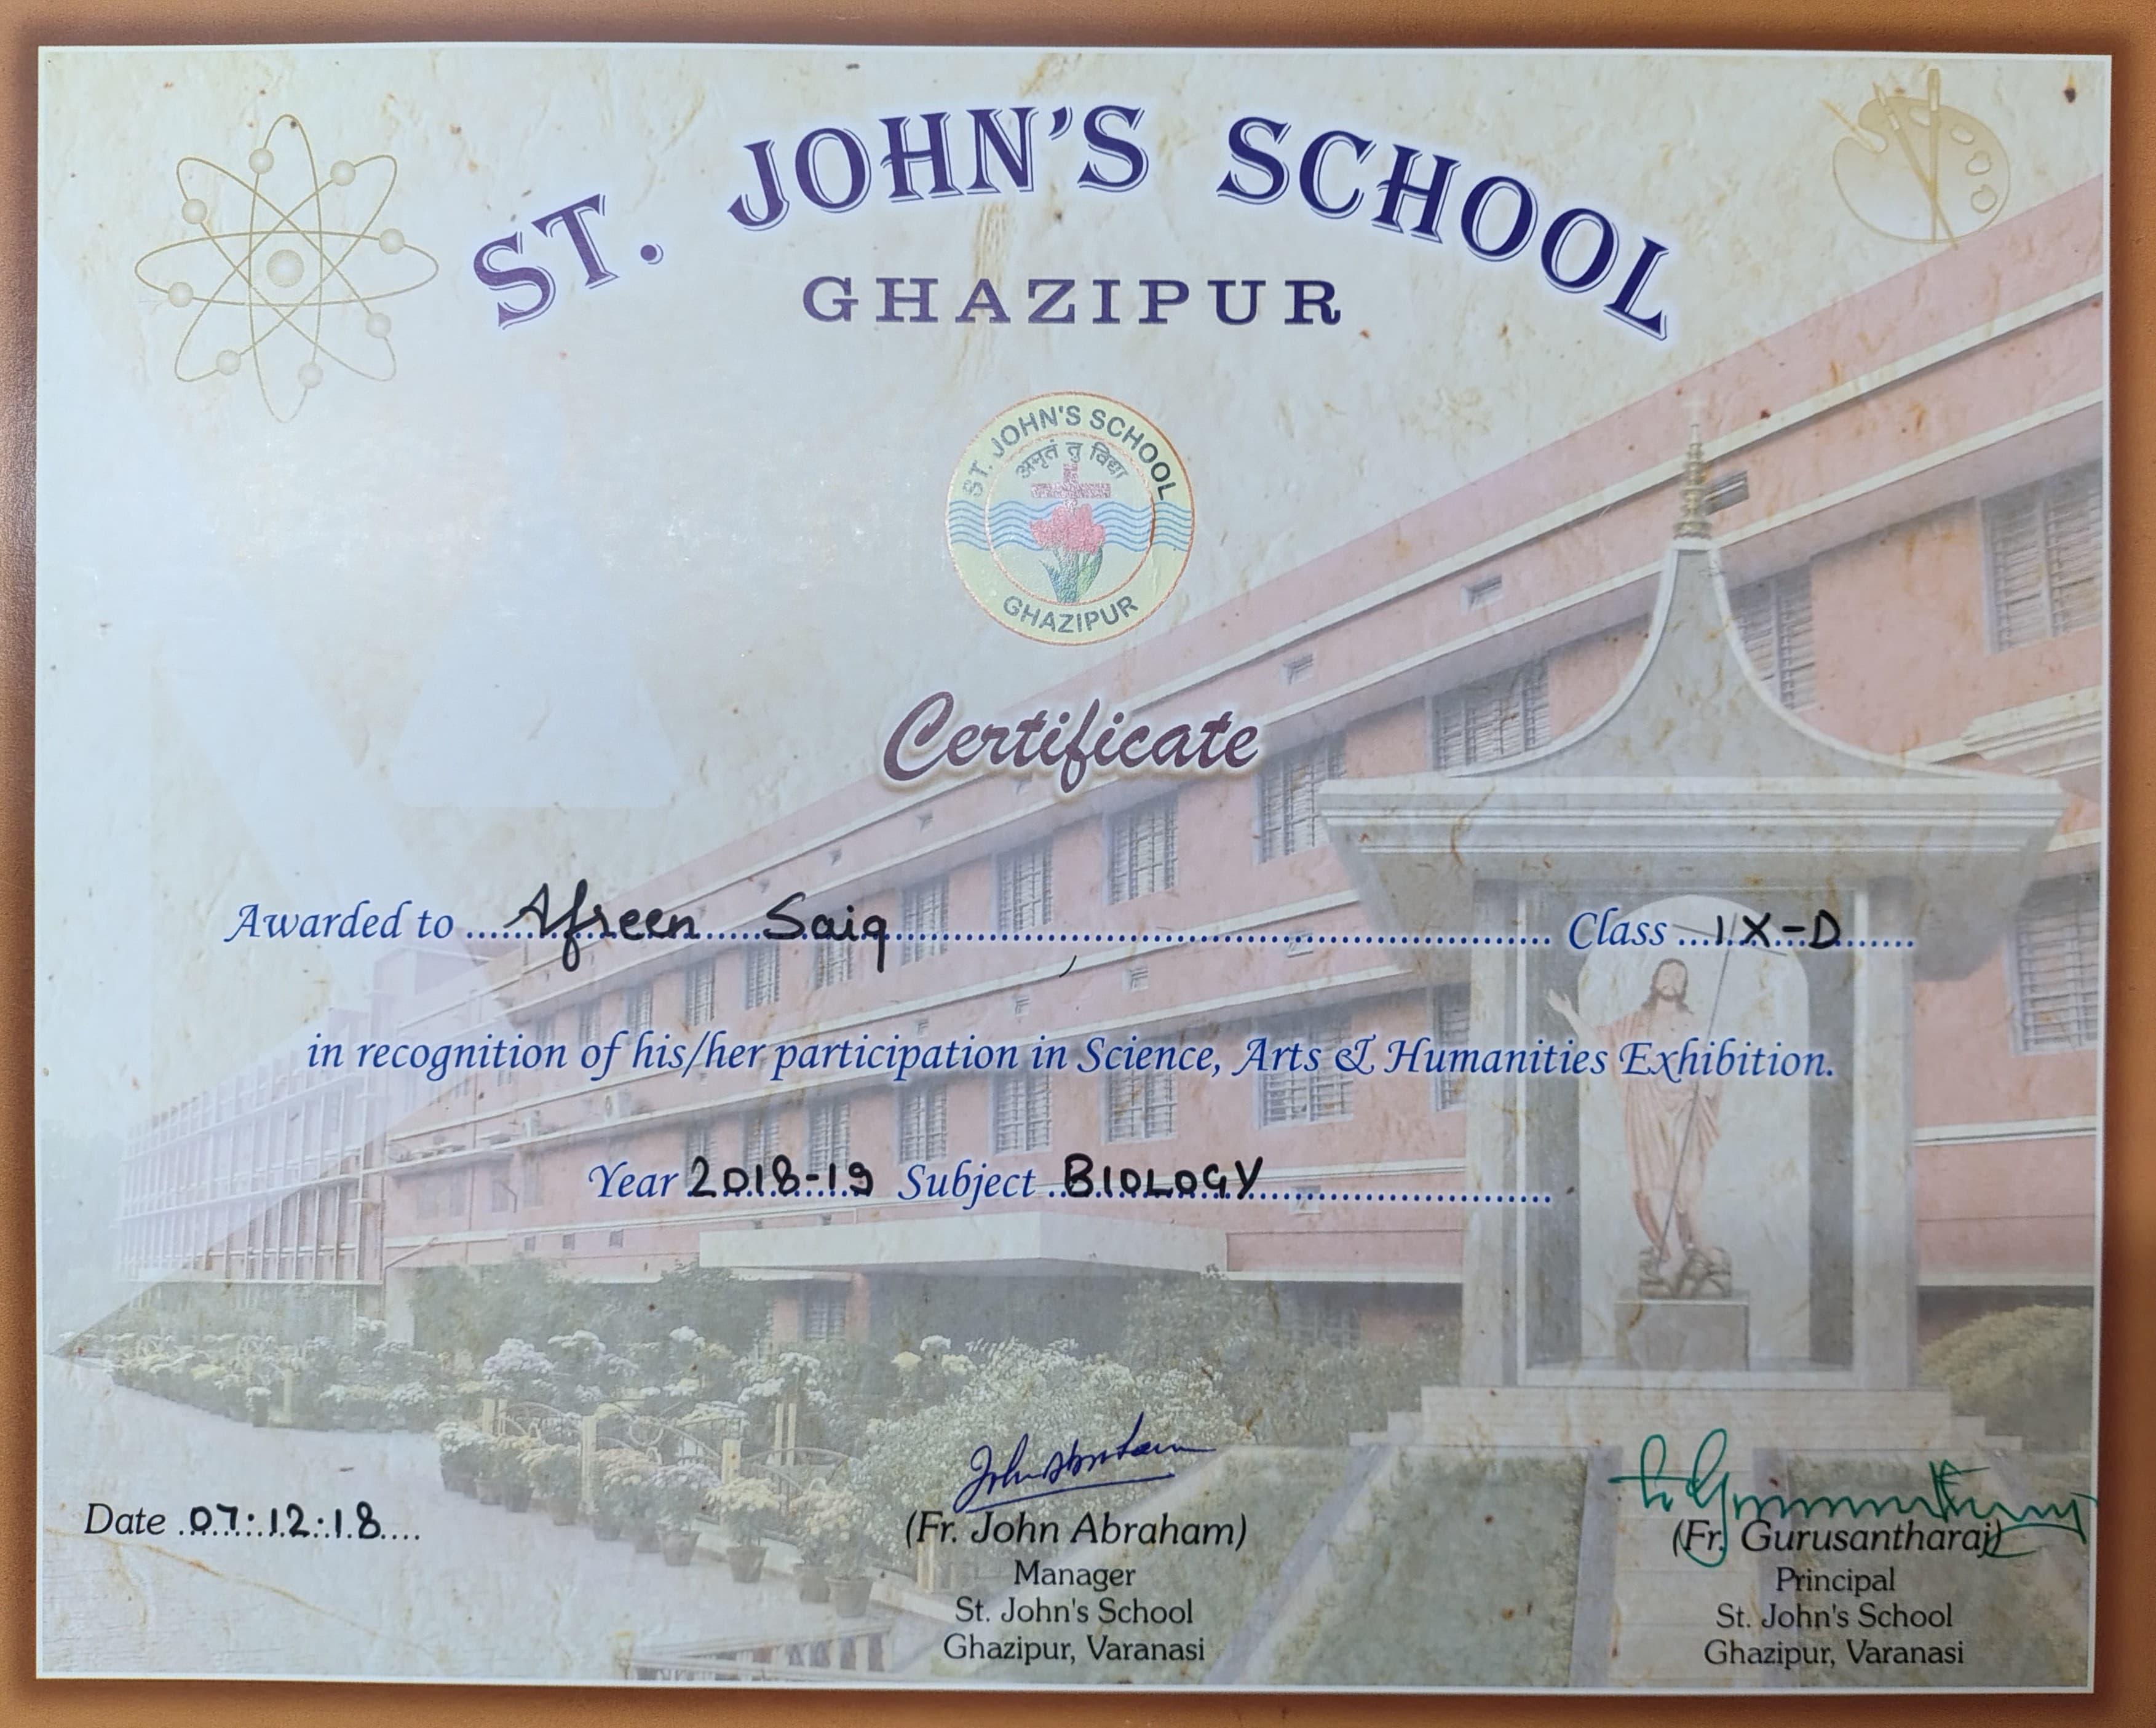 ST. JOHN'S SCHOOL
GHAZIPUR
ST. JOHN'S SCHOOL
अमृतं तु विद्या
GHAZIPUR
Certificate
Awarded to ...... Afreen Saiq ...... Class ... IX-D ......
in recognition of his/her participation in Science, Arts & Humanities Exhibition.
Year 2018-19 Subject .. BIOLOGY ......
Date . 07:12:18 ....
John Abraham
(Fr. John Abraham)
Manager
St. John's School
Ghazipur, Varanasi
(Fr. Gurusantharaj)
Principal
St. John's School
Ghazipur, Varanasi